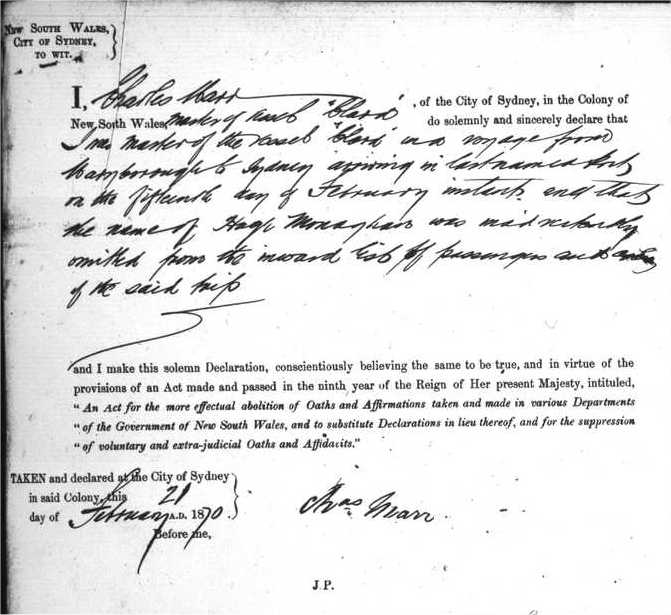 NEW SOUTH WALES,
CITY OF SYDNEY,
TO WIT.
I, Charles Marr, of the City of Sydney, in the Colony of
New South Wales, master of vessel "Clara" do solemnly and sincerely declare that
I was master of the vessel "Clara" on a voyage from
Maryborough to Sydney arriving in last named Port
on the fifteenth day of February instant and that
the name of Hugh Monaghan was inadvertently
omitted from the inward list of passengers and
of the said trip
and I make this solemn Declaration, conscientiously believing the same to be true, and in virtue of the
provisions of an Act made and passed in the ninth year of the Reign of Her present Majesty, intituled,
"An Act for the more effectual abolition of Oaths and Affirmations taken and made in various Departments
"of the Government of New South Wales, and to substitute Declarations in lieu thereof, and for the suppression
"of voluntary and extra-judicial Oaths and Affidavits."
TAKEN and declared at the City of Sydney
in said Colony, this 21
day of February A.D. 1870.
Before me,
Chas Marr
J.P.